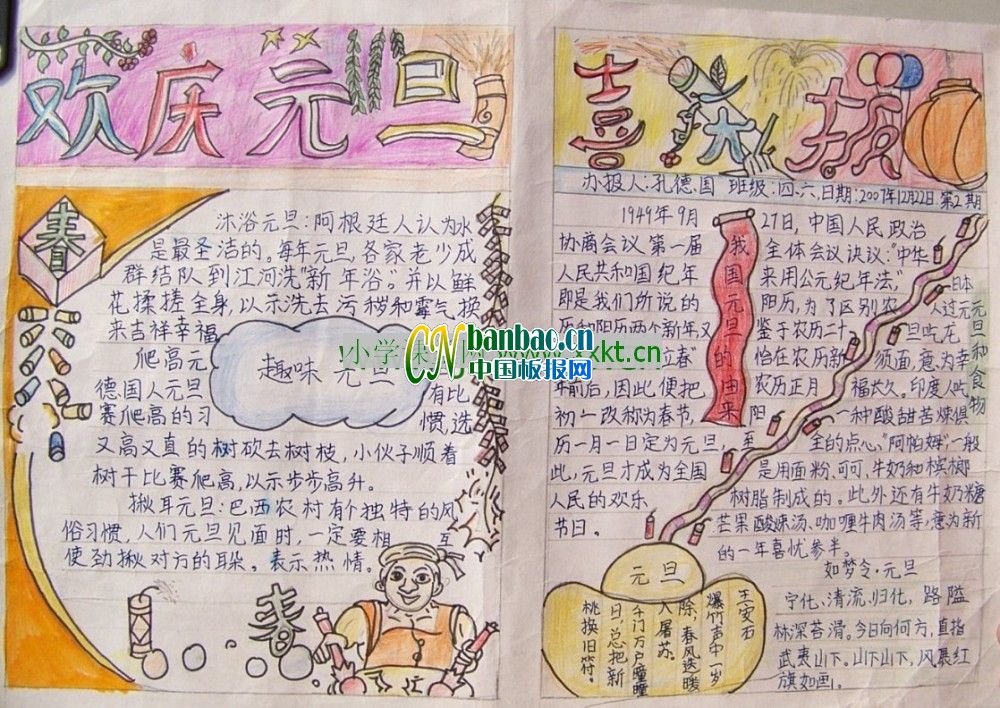 欢庆元旦
春
沐浴元旦:阿根廷人认为水
是最圣洁的。每年元旦,各家老少成
群结队到江河洗"新年浴"。并以鲜
花揉搓全身,以示洗去污秽和霉气换
来吉祥幸福
趣味元旦
爬高元
德国人元旦 有比
赛爬高的习 惯,选
又高又直的树砍去树枝,小伙子顺着
树干比赛爬高,以示步步高升。
揪耳元旦:巴西农村有个独特的风
俗习惯,人们元旦见面时,一定要相互
使劲揪对方的耳朵。表示热情。
春
喜
办报人:孔德国 班级:四.六.日期:2007年12月22日 第2期
我国元旦的由来
1949年9月 27日,中国人民政治
协商会议第一届 全体会议决议:"中华
人民共和国纪年 来用公元纪年法",
即是我们所说的 阳历,为了区别农
历和阳历两个新年又 鉴于农历二十
立春" 恰在农历新
年前后,因此便把 农历正月
初一改称为春节, 阳
历一月一日定为元旦, 至
此,元旦才成为全国
人民的欢乐
节日。
元旦和食物
日本
人过元
旦吃龙
须面,意为幸
福太久。印度人吃
一种酸甜苦辣俱
全的点心,"阿帕姆"一般
是用面粉、可可、牛奶和槟榔
树脂制成的。此外还有牛奶糖
芒果酸辣汤、咖喱牛肉汤等,意为新
的一年喜忧参半。
如梦令·元旦
宁化、清流、归化,路隘
林深苔滑。今日向何方,直指
武夷山下。山下山下,风展红
旗如画。
元旦
王安石
爆竹声中一岁
除,春风送暖
入屠苏。
千门万户瞳瞳
日,总把新
桃换旧符。
CN banbao.cn
中国板报网
www.xxkt.cn